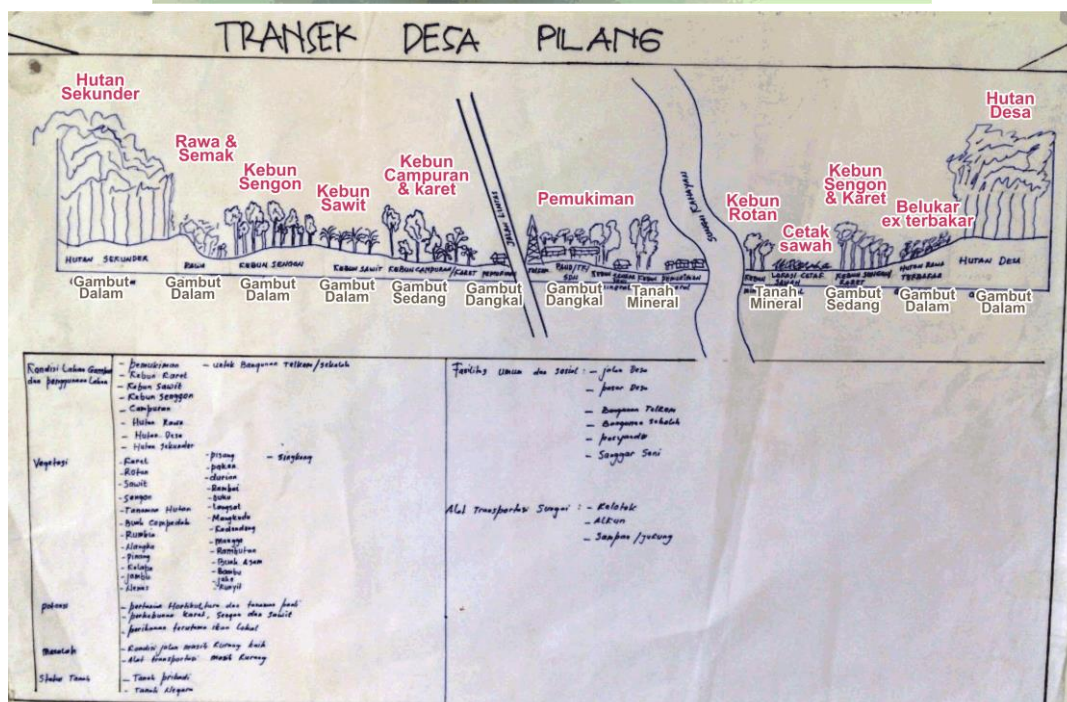 TRANSEK DESA PILANG
Hutan
Sekunder
Rawa &
Semak
Kebun
Sengon
Kebun
Sawit
Kebun
Campuran
& karet
Pemukiman
Kebun
Rotan
Cetak
sawah
Kebun
Sengon
& Karet
Belukar
ex terbakar
Hutan
Desa
JALAN LINTAS
SUNGAI KAHAYAN
HUTAN SEKUNDER
RAWA
KEBUN SENGON
KEBUN SAWIT
KEBUN CAMPURAN/KARET
TELKOM
PAUD/TK/
SDN
KEBUN
LOKASI CETAK
SAWAH
KEBUN SENGON/
KARET
HUTAN RAWA
TERBAKAR
HUTAN DESA
Gambut
Dalam
Gambut
Dalam
Gambut
Dalam
Gambut
Dalam
Gambut
Sedang
Gambut
Dangkal
Gambut
Dangkal
Tanah
Mineral
Tanah
Mineral
Gambut
Sedang
Gambut
Dalam
Gambut
Dalam
Kondisi Lahan Gambut
dan penggunaan Lahan
- Pemukiman - untuk Bangunan Telkom/sekolah
- Kebun Karet
- Kebun Sawit
- Kebun Senggon
- Campuran
- Hutan Rawa
- Hutan Desa
- Hutan Sekunder
Vegetasi
- Karet
- Rotan
- Sawit
- Sengon
- Tanaman Hutan
- Buah Campedak
- Rumbia
- Nangka
- Pinang
- Kelapa
- jambu
- Nenas
- pisang
- durian
- Rambai
- Duku
- Langsat
- Mangkudu
- mangga
- Rambutan
- Buah Asam
- Bambu
- jahe
- Kunyit
- Singkong
potensi
- pertanian Hortikultura dan tanaman padi
- perkebunan Karet, Sengon dan Sawit
- perikanan terutama ikan Lokal
Masalah
- Kondisi jalan masih Kurang baik
- Alat transportasi masih Kurang
Status Tanah
- Tanah pribadi
- Tanah Negara
Fasilitas Umum dan Sosial : - jalan Desa
- pasar Desa
- Bangunan Telkom
- Bangunan Sekolah
- posyandu
- Sanggar Seni
Alat Transportasi Sungai : - Kelotok
- Alkon
- Sampan / jukung